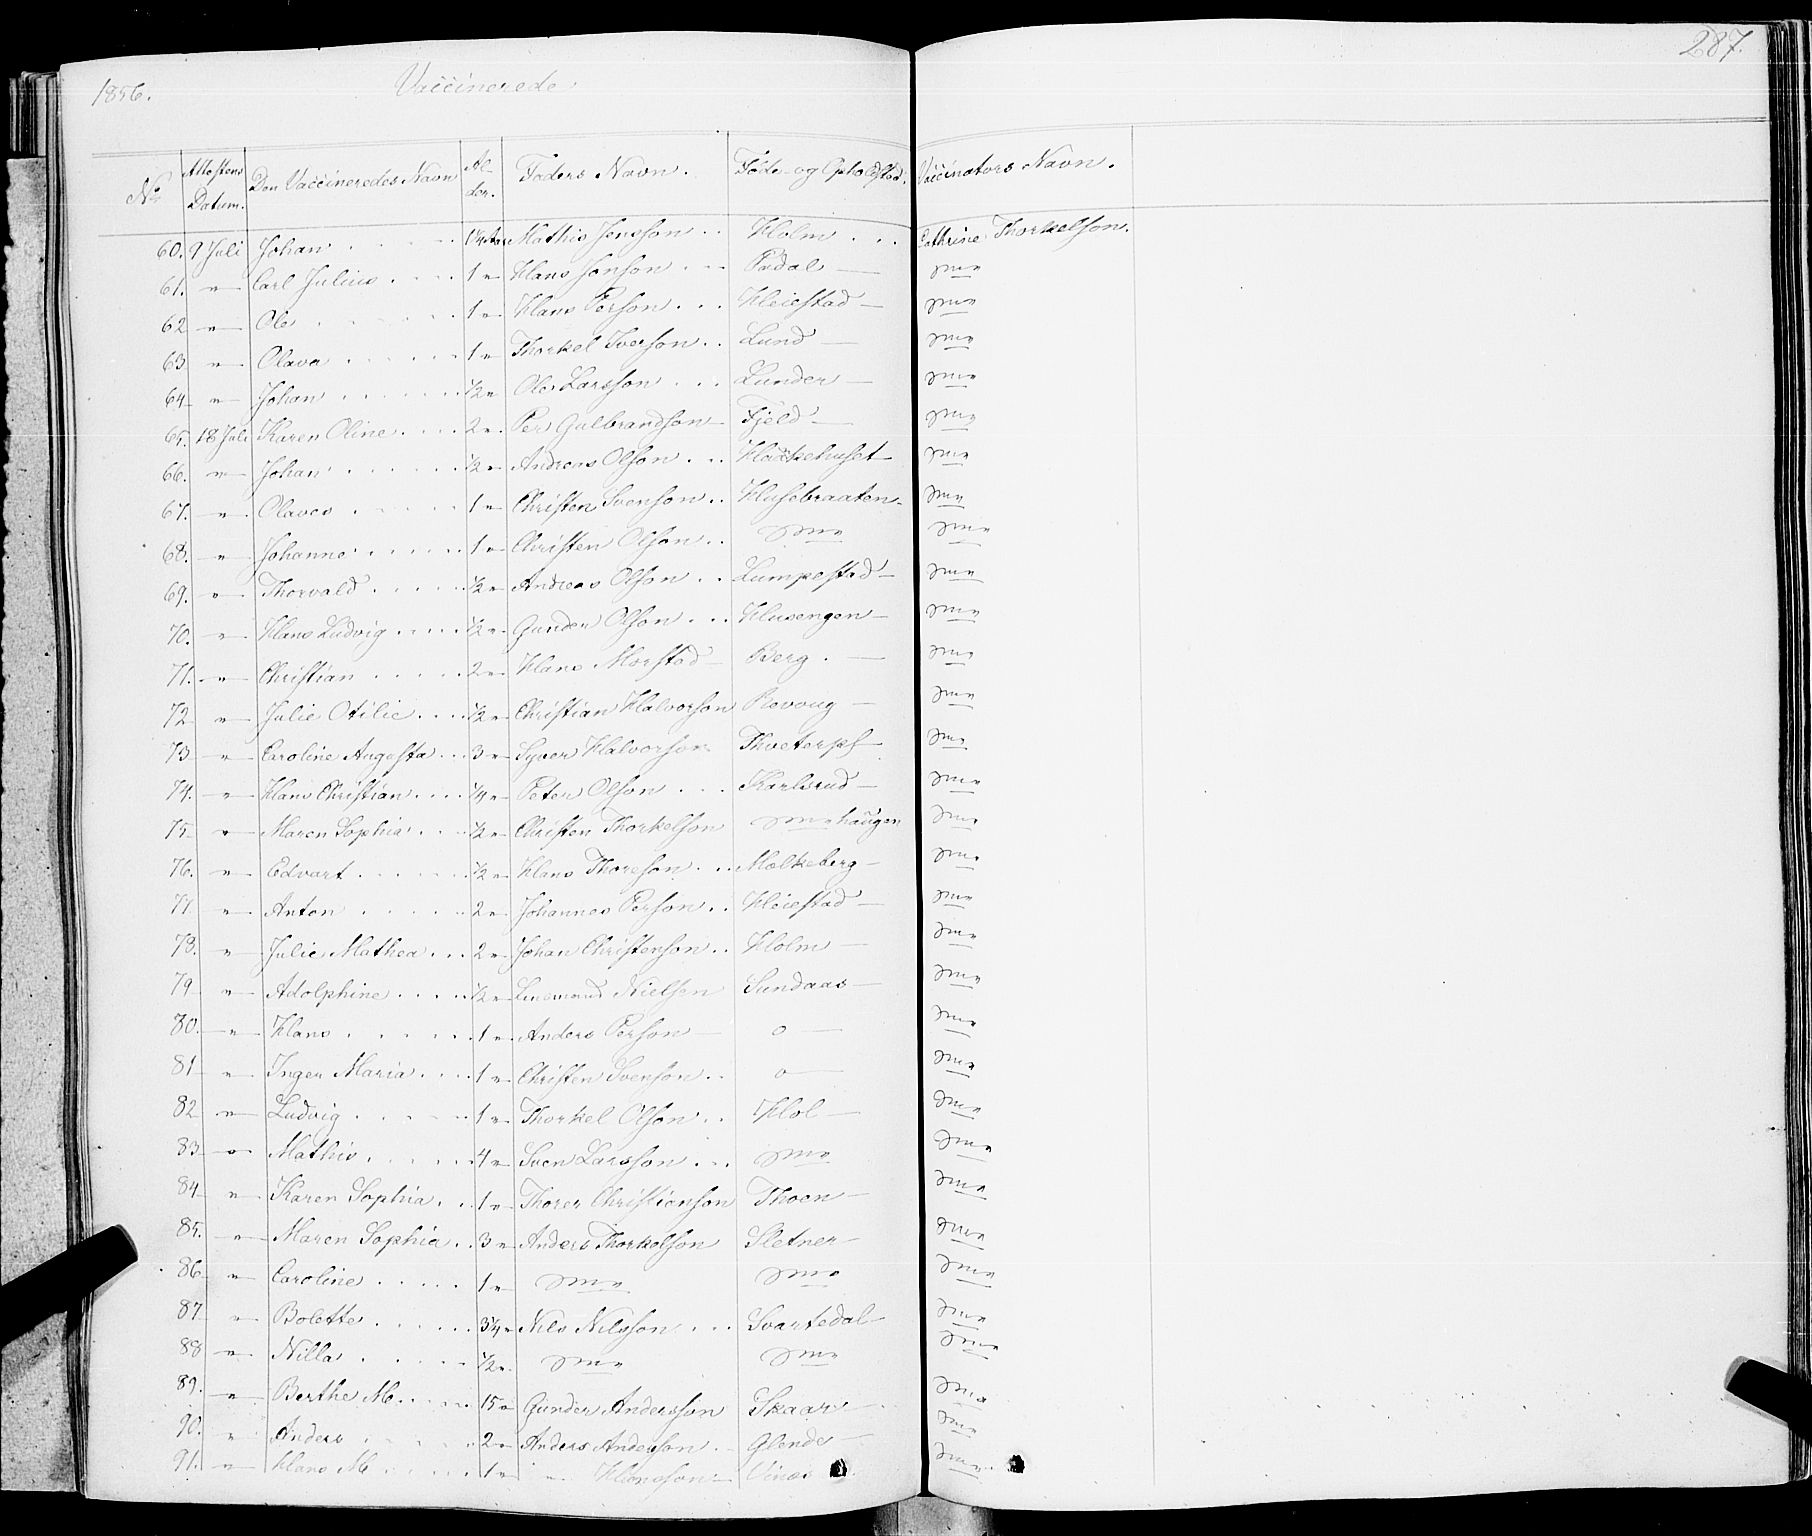 1856. Vaccinerede 287.
No Attestens Datum. Den Vaccineredes Navn Alder. Faders Navn. Føde- og Opholdsted. Vaccinators Navn.
60. 9 Juli Johan . . . 1¼ Aar Mathis Jensson . . Holm . . . Cathrine Thorkelson.
61. " Carl Julius . . . 1 " Hans Jonson . . . — Dmo
62 " Ole . . . 1 " Hans Person . . . Heiestad — Dmo
63 " Olava . . . 1 " Thorkel Iverson . . Lund — Dmo
64 " Johan . . . ½ " Ole Larsson . . . Lunder — Dmo
65. 18 Juli Karen Oline . . . 2 " Per Gulbrandson — Fjeld — Dmo
66. " Johan . . . ½ " Andreas Olson . . . Hakkehuset — Dmo
67. " Olaves . . . 1 " Christen Svenson . . Husebraaten — Dmo
68. " Johanne . . . 1 " Christen Olson . . Dmo Dmo
69. " Thorvald . . . ½ " Andreas Olson . . Lumpestad — Dmo
70. " Hans Ludvig . . . ½ " Gunder Olson . . . Husengen — Dmo
71. " Christian . . . 2 " Hans Morstad — Berg . — Dmo
72 " Julie Otilie . . . ½ " Christian Halvorson Revoug — Dmo
73 " Caroline Augusta . . . 3 " Syver Halvorson Thveterpf — Dmo
74. " Hans Christian . . . ¼ " Peter Olson . . . Karlsrud — Dmo
75. " Maren Sophia . . . ½ " Christen Thorkelson Dmo haugen Dmo
76. " Edvart . . . ½ " Hans Thoreson . . . Molkeberg — Dmo
77 " Anton . . . 2 " Johannes Person . . Heiestad — Dmo
78. " Julie Mathea . . . 2 " Johan Christenson . . Holm — Dmo
79 " Adolphine . . . ½ " Nielsen Sundaas — Dmo
80. " Hans . . . 1 " Anders Person — o — Dmo
81 " Inger Maria . . . 1 " Christen Svenson . . o — Dmo
82 " Ludvig . . . 1 " Thorkel Olson . . Hol — Dmo
83 " Mathis . . . 4 " Sven Larsson . . . Dmo Dmo
84 " Karen Sophia . . . 1 " Thorer Christianson Thoen — Dmo
85. " Maren Sophia . . 3 " Anders Thorkelson Sletner — Dmo
86 " Caroline . . . 1 " Dmo Dmo Dmo
87 " Bolette . . . 3¼ " Nils Nilsson . . . Svartedal — Dmo
88 " Nilla . . . ½ " Dmo Dmo Dmo
89. " Berthe M. . . . 15 " Gunder Andersson Skaar — Dmo
90. " Anders . . . 2 " Anders Anderson . — Glende — Dmo
91. " Hans M . . . 1 " " Hansson — Dmo